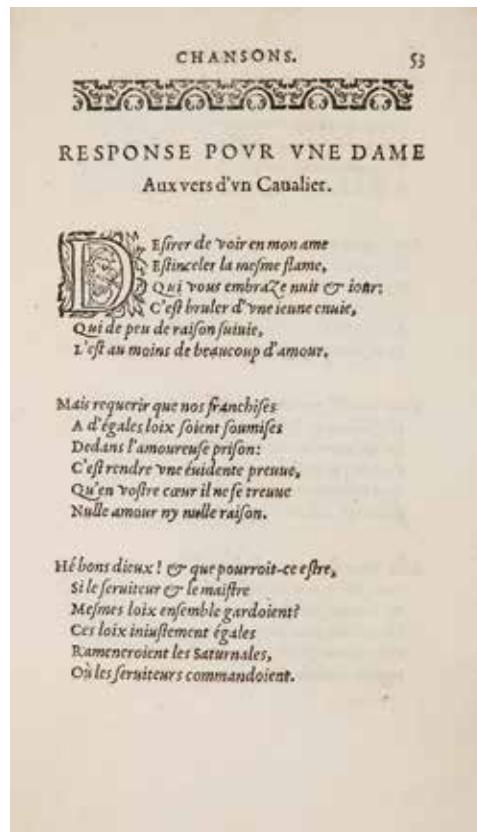 CHANSONS. 53
RESPONSE POVR VNE DAME
Aux vers d'vn Caualier.
DEſirer de voir en mon ame
Eſtinceler la meſme flame,
Qui vous embraze nuit & iour:
C'eſt bruler d'vne ieune enuie,
Qui de peu de raiſon ſuiuie,
L'eſt au moins de beaucoup d'amour.
Mais requerir que nos franchiſes
A d'égales loix ſoient ſoumiſes
Dedans l'amoureuſe priſon:
C'eſt rendre vne éuidente preuue,
Qu'en voſtre cœur il ne ſe treuue
Nulle amour ny nulle raiſon.
Hé bons dieux! & que pourroit-ce eſtre,
Si le ſeruiteur & le maiſtre
Meſmes loix enſemble gardoient?
Ces loix iniuſtement égales
Rameneroient les Saturnales,
Où les ſeruiteurs commandoient.